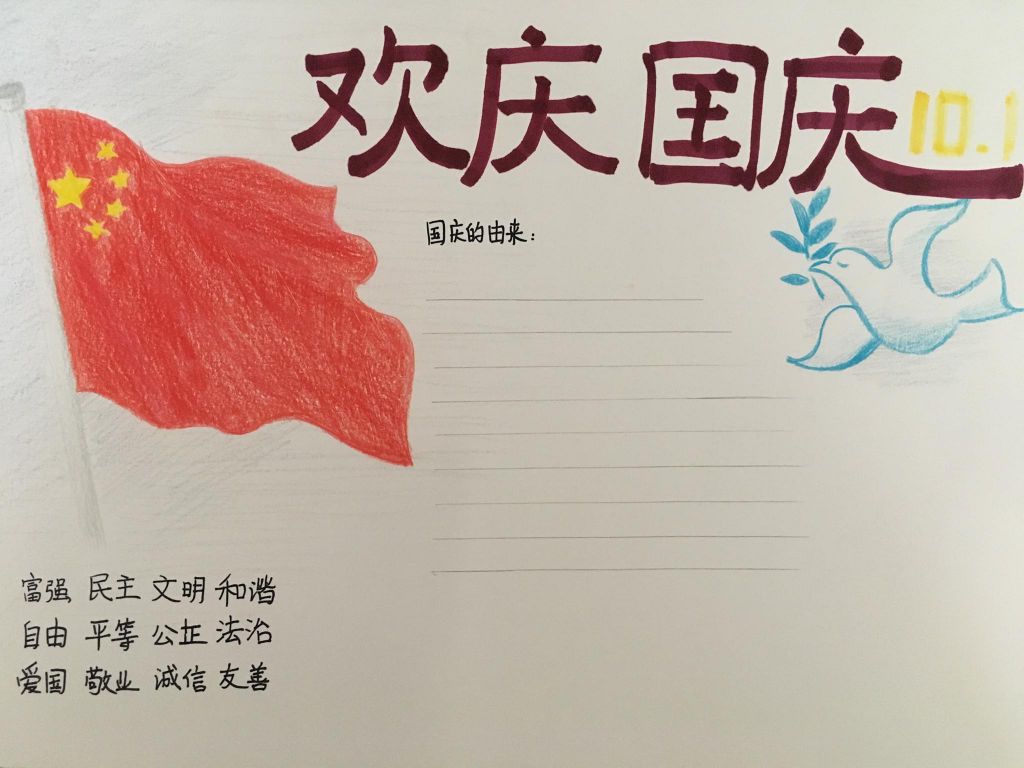 欢庆国庆
10.1
国庆的由来：
富强 民主 文明 和谐
自由 平等 公正 法治
爱国 敬业 诚信 友善